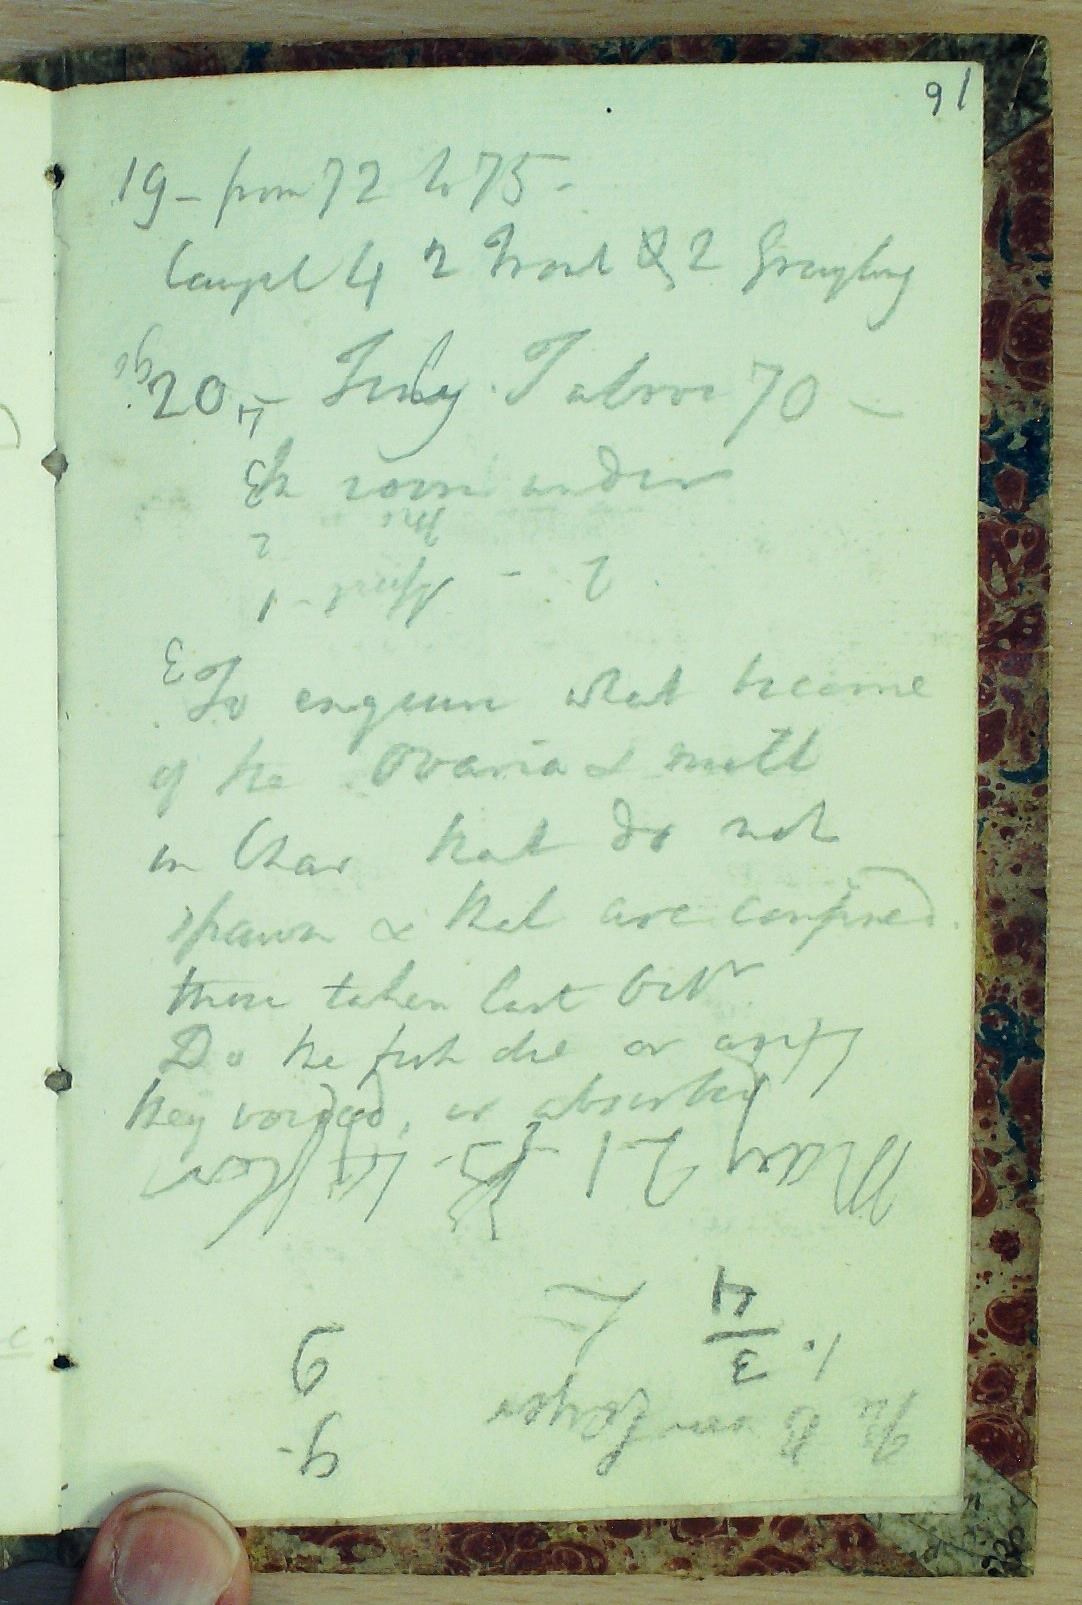 91
19 - from 72 to 75 -
Caught 4 2 Trout & 2 Grayling
20 - July. T above 70 -
room under
2
1 -
3
To enquire what become
of the Ovaria & milt
in Char that do not
spawn & that are confined.
those taken last Octr
Do the fish die or are
they voided, or absorbed
May 21
1. 3/4
9
9-